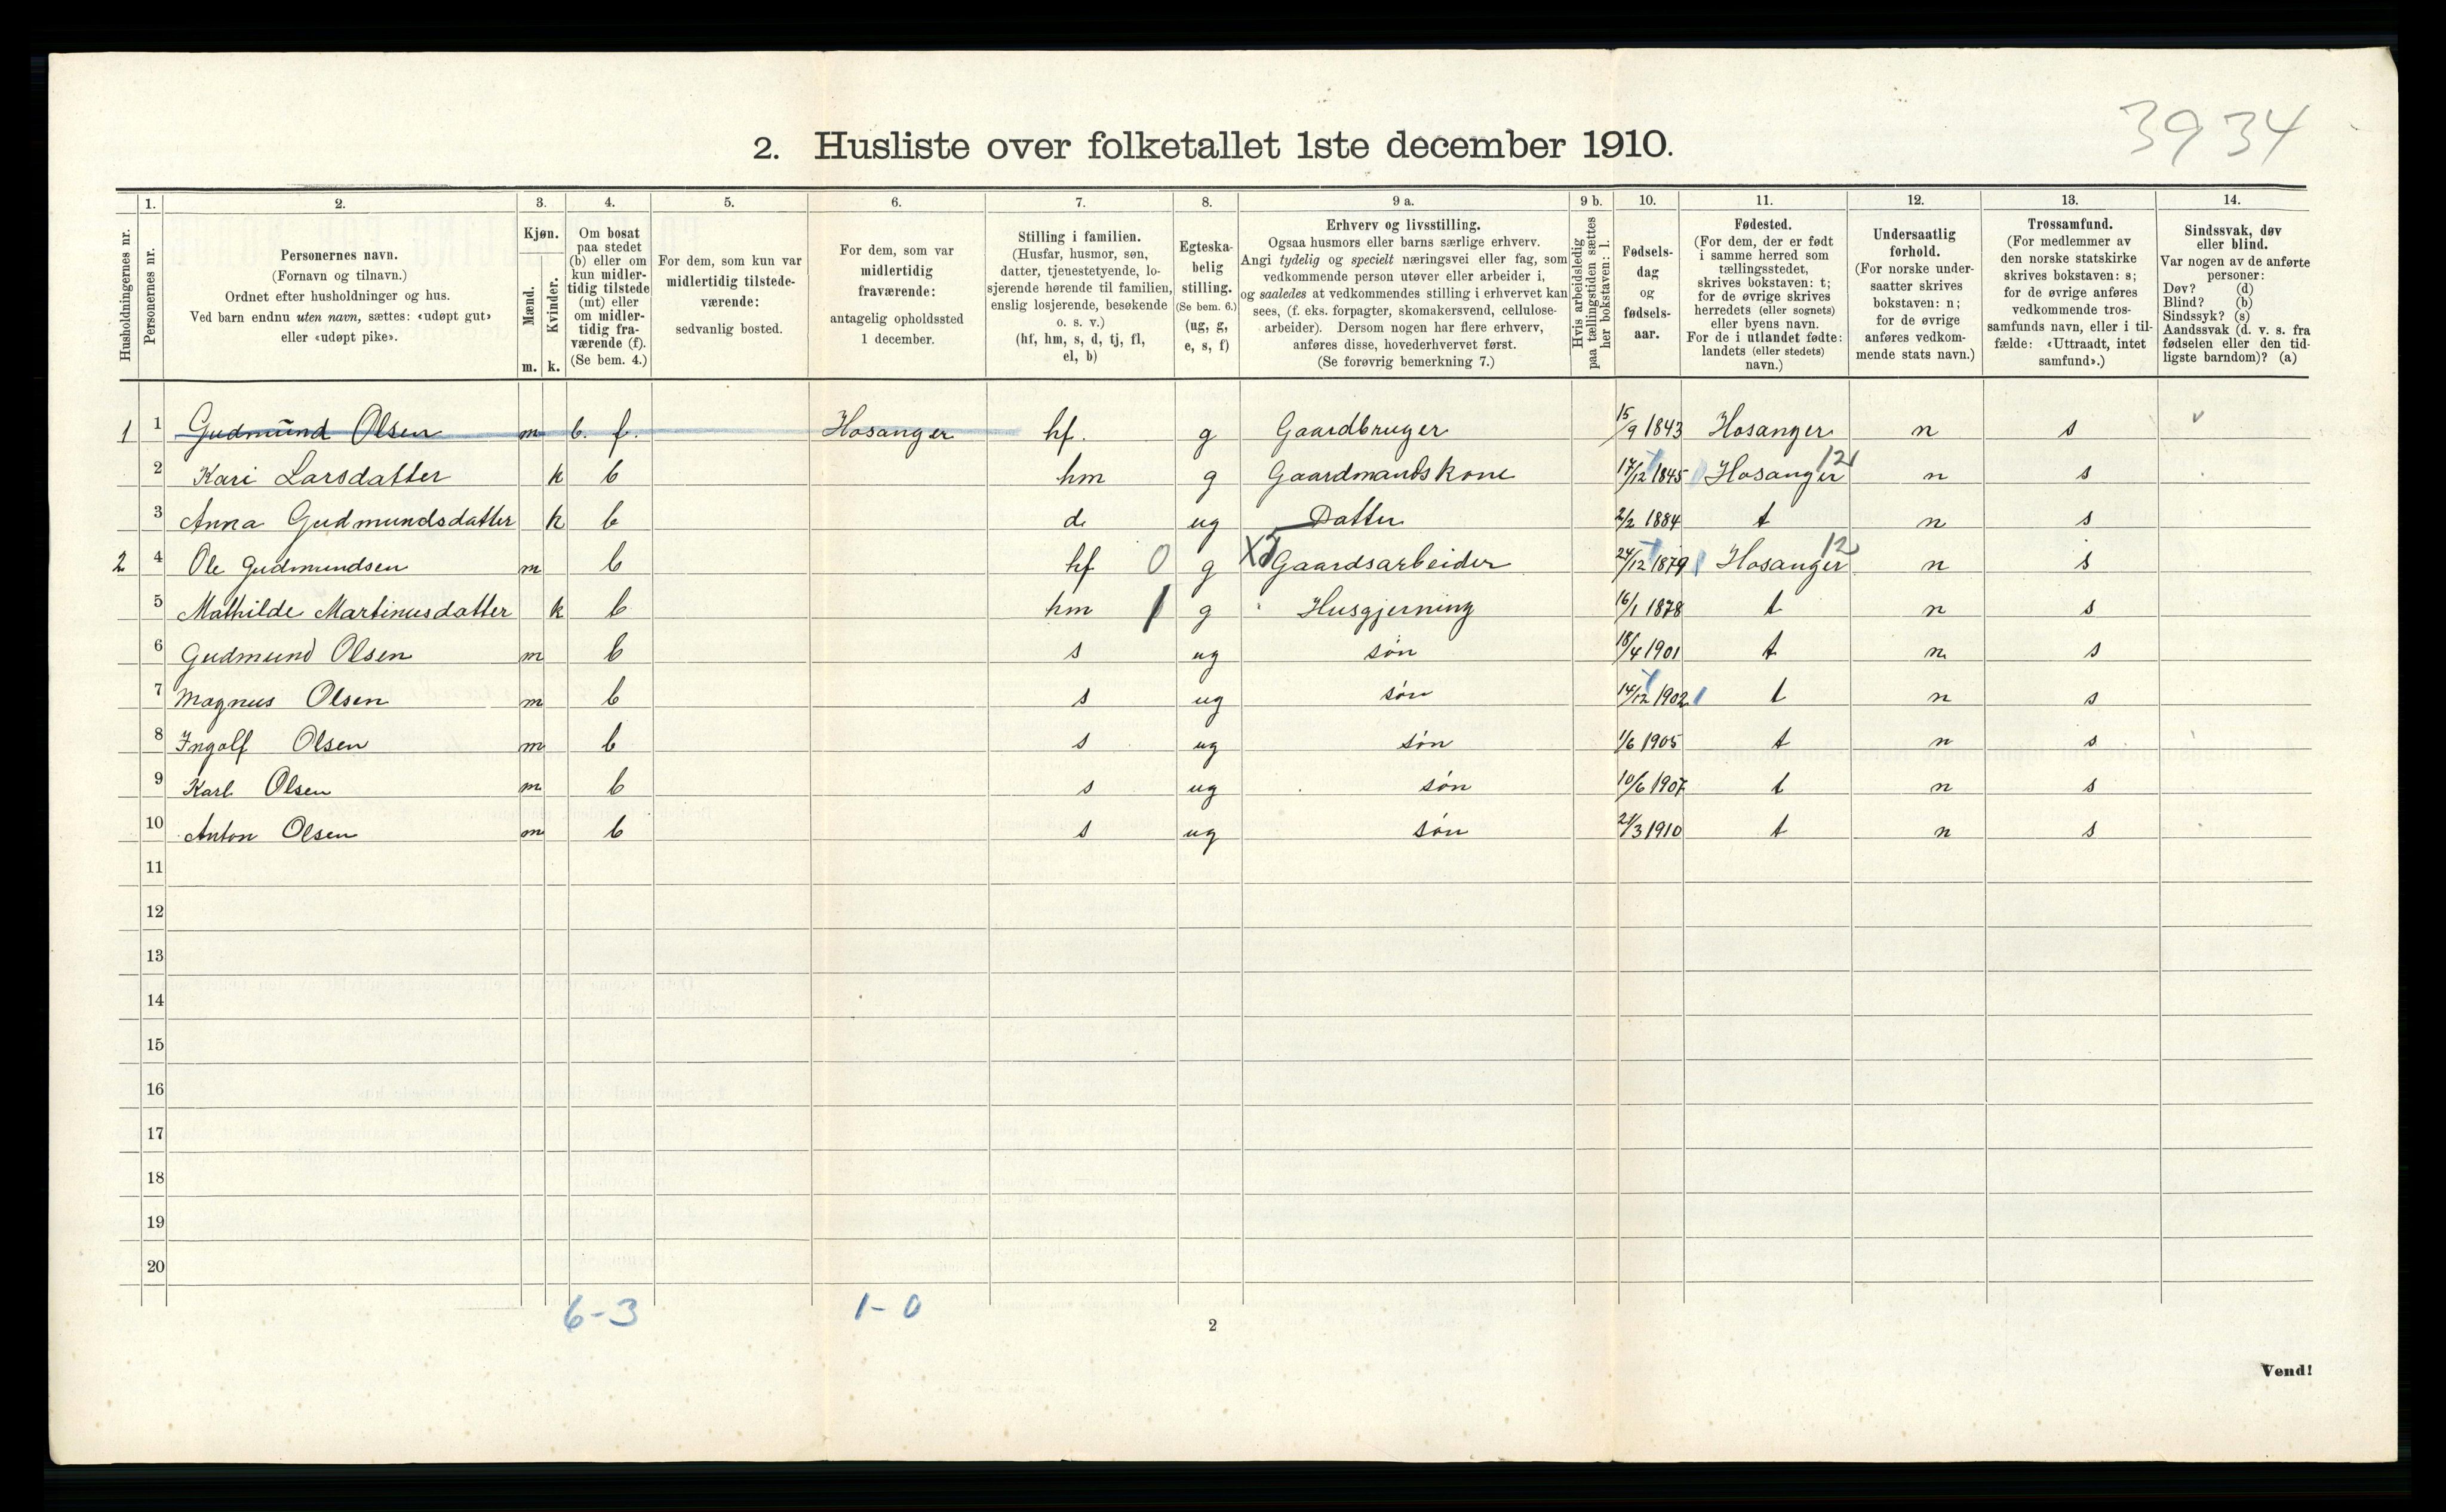 3934
2. Husliste over folketallet 1ste december 1910.
Husholdningernes nr.
1.
Personernes nr.
2.
Personernes navn.
(Fornavn og tilnavn.)
Ordnet efter husholdninger og hus.
Ved barn endnu uten navn, sættes: «udøpt gut»
eller «udøpt pike».
3.
Kjøn.
Mænd.
Kvinder.
m. k.
4.
Om bosat
paa stedet
(b) eller om
kun midler-
tidig tilstede
(mt) eller
om midler-
tidig fra-
værende (f).
(Se bem. 4.)
5.
For dem, som kun var
midlertidig tilstede-
værende:
sedvanlig bosted.
6.
For dem, som var
midlertidig
fraværende:
antagelig opholdssted
1 december.
7.
Stilling i familien.
(Husfar, husmor, søn,
datter, tjenestetyende, lo-
sjerende hørende til familien,
enslig losjerende, besøkende
o. s. v.)
(hf, hm, s, d, tj, fl,
el, b)
8.
Egteska-
belig
stilling.
(Se bem. 6.)
(ug, g,
e, s, f)
9 a.
Erhverv og livsstilling.
Ogsaa husmors eller barns særlige erhverv.
Angi tydelig og specielt næringsvei eller fag, som
vedkommende person utøver eller arbeider i,
og saaledes at vedkommendes stilling i erhvervet kan
sees, (f. eks. forpagter, skomakersvend, cellulose-
arbeider). Dersom nogen har flere erhverv,
anføres disse, hovederhvervet først.
(Se forøvrig bemerkning 7.)
9 b.
Hvis arbeidsledig
paa tællingstiden sættes
her bokstaven: l.
10.
Fødsels-
dag
og
fødsels-
aar.
11.
Fødested.
(For dem, der er født
i samme herred som
tællingsstedet,
skrives bokstaven: t;
for de øvrige skrives
herredets (eller sognets)
eller byens navn.
For de i utlandet fødte:
landets (eller stedets)
navn.)
12.
Undersaatlig
forhold.
(For norske under-
saatter skrives
bokstaven: n;
for de øvrige
anføres vedkom-
mende stats navn.)
13.
Trossamfund.
(For medlemmer av
den norske statskirke
skrives bokstaven: s;
for de øvrige anføres
vedkommende tros-
samfunds navn, eller i til-
fælde: «Uttraadt, intet
samfund».)
14.
Sindssvak, døv
eller blind.
Var nogen av de anførte
personer:
Døv? (d)
Blind? (b)
Sindssyk? (s)
Aandssvak (d. v. s. fra
fødselen eller den tid-
ligste barndom)? (a)
1 1 Gudmund Olsen m b. f. Hosanger hf. g Gaardbruger 15/9 1843 Hosanger n s v
2 Kari Larsdatter k b hm g Gaardmandskone 17/12 1845 Hosanger 12 n s
3 Anna Gudmundsdatter k b d ug Datter 2/2 1884 t n s
2 4 Ole Gudmundsen m b hf 0 g Gaardsarbeider 24/12 1879 Hosanger 12 n s
5 Mathilde Martinusdatter k b hm 1 g Husgjerning 16/1 1878 t n s
6 Gudmund Olsen m b s ug søn 18/4 1901 t n s
7 Magnus Olsen m b s ug søn 14/12 1902 t n s
8 Ingolf Olsen m b s ug søn 1/6 1905 t n s
9 Karl Olsen m b s ug søn 10/6 1907 t n s
10 Anton Olsen m b s ug søn 21/3 1910 t n s
11
12
13
14
15
16
17
18
19
20
6-3 1-0
2
Vend!